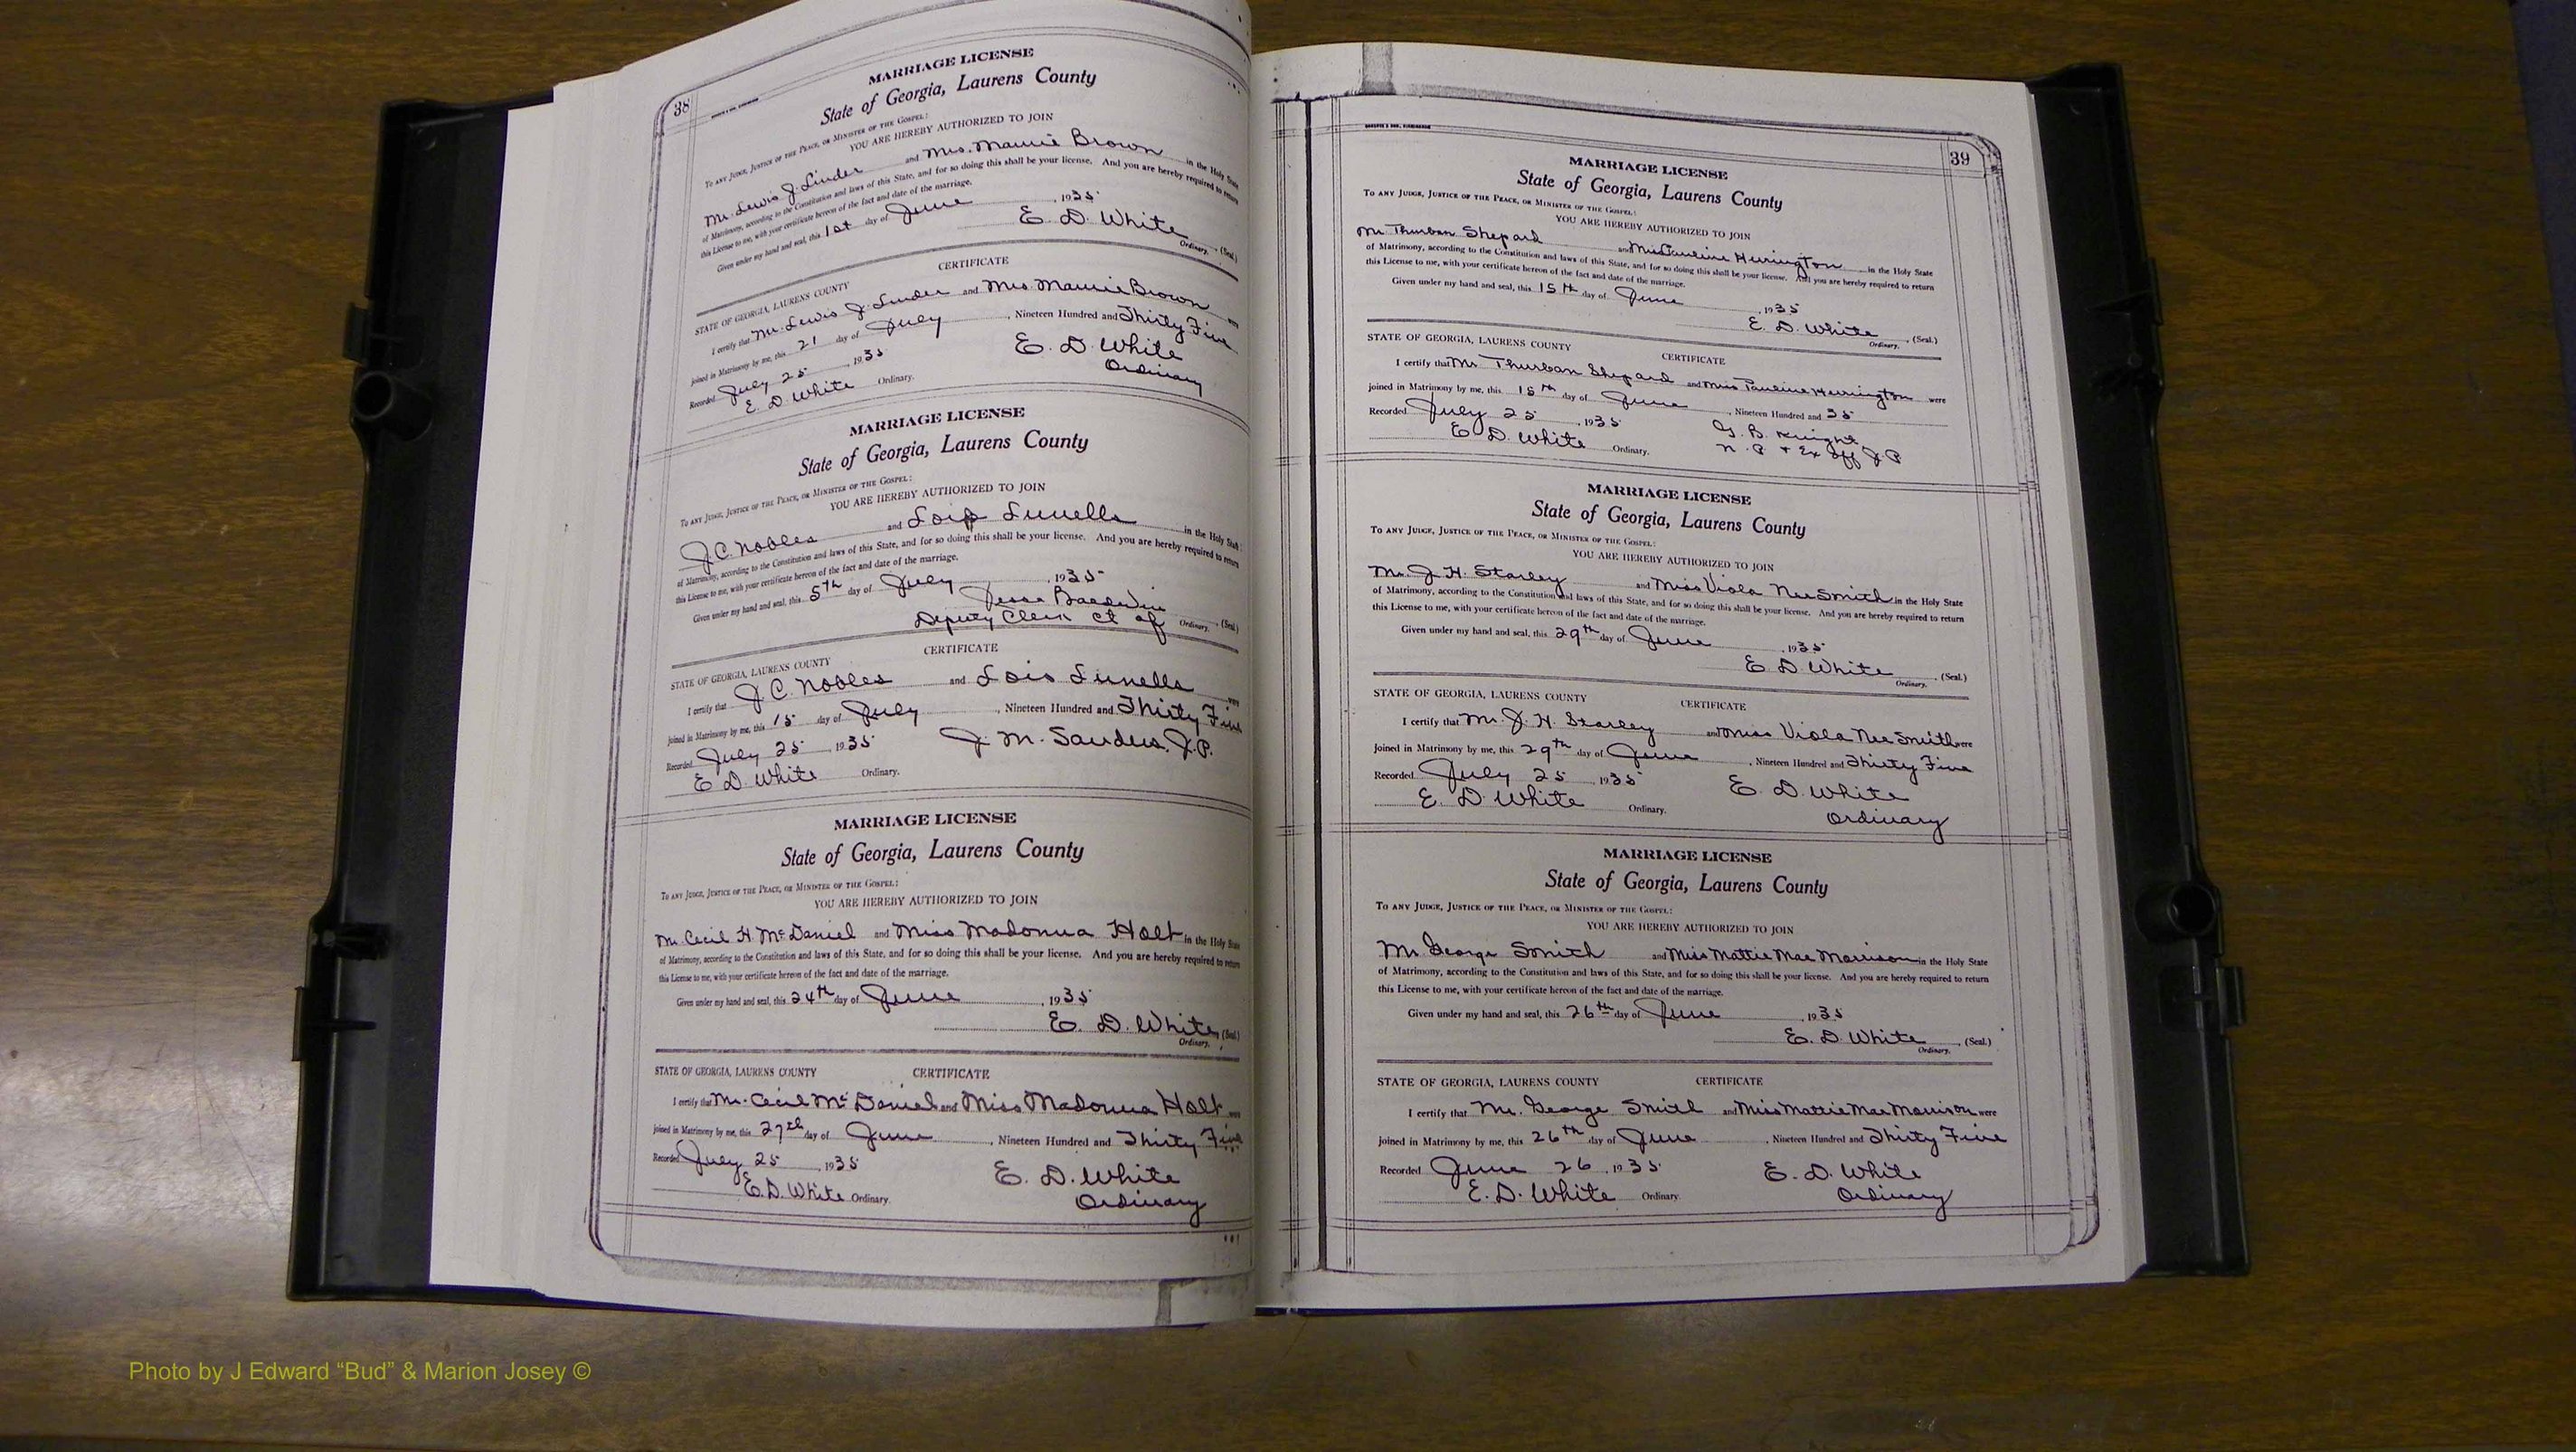 38
MARRIAGE LICENSE
State of Georgia, Laurens County
To any Judge, Justice of the Peace, or Minister of the Gospel:
YOU ARE HEREBY AUTHORIZED TO JOIN
Mr. Lewis J. Linder and Mrs. Mamie Brown in the Holy State
of Matrimony, according to the Constitution and laws of this State, and for so doing this shall be your license. And you are hereby required to return
this License to me, with your certificate hereon of the fact and date of the marriage.
Given under my hand and seal, this 1st day of June, 1935
E. D. White (Seal)
Ordinary.
CERTIFICATE
STATE OF GEORGIA, LAURENS COUNTY
I certify that Mr. Lewis J. Linder and Mrs. Mamie Brown were
joined in Matrimony by me, this 21 day of July, Nineteen Hundred and Thirty Five
Recorded July 25, 1935 E. D. White
E. D. White Ordinary. Ordinary
MARRIAGE LICENSE
State of Georgia, Laurens County
To any Judge, Justice of the Peace, or Minister of the Gospel:
YOU ARE HEREBY AUTHORIZED TO JOIN
J. C. Nobles and Lois in the Holy State
of Matrimony, according to the Constitution and laws of this State, and for so doing this shall be your license. And you are hereby required to return
this License to me, with your certificate hereon of the fact and date of the marriage.
Given under my hand and seal, this 5th day of July, 1935
Jesse Baldwin (Seal)
Deputy Clerk Ct of Ordinary.
CERTIFICATE
STATE OF GEORGIA, LAURENS COUNTY
I certify that J. C. Nobles and Lois were
joined in Matrimony by me, this 15 day of July, Nineteen Hundred and Thirty Five
Recorded July 25, 1935 J. M. Sanders, J.P.
E. D. White Ordinary.
MARRIAGE LICENSE
State of Georgia, Laurens County
To any Judge, Justice of the Peace, or Minister of the Gospel:
YOU ARE HEREBY AUTHORIZED TO JOIN
Mr. Cecil H McDaniel and Miss Madonna Holt in the Holy State
of Matrimony, according to the Constitution and laws of this State, and for so doing this shall be your license. And you are hereby required to return
this License to me, with your certificate hereon of the fact and date of the marriage.
Given under my hand and seal, this 24th day of June, 1935
E. D. White, (Seal)
Ordinary.
STATE OF GEORGIA, LAURENS COUNTY CERTIFICATE
I certify that Mr. Cecil McDaniel and Miss Madonna Holt were
joined in Matrimony by me, this 27th day of June, Nineteen Hundred and Thirty Five
Recorded July 25, 1935 E. D. White
E. D. White Ordinary. Ordinary
39
MARRIAGE LICENSE
State of Georgia, Laurens County
To any Judge, Justice of the Peace, or Minister of the Gospel:
YOU ARE HEREBY AUTHORIZED TO JOIN
Mr Thurban Shepard and Miss Pauline Herrington in the Holy State
of Matrimony, according to the Constitution and laws of this State, and for so doing this shall be your license. And you are hereby required to return
this License to me, with your certificate hereon of the fact and date of the marriage.
Given under my hand and seal, this 15th day of June, 1935
E. D. White, (Seal.)
Ordinary.
STATE OF GEORGIA, LAURENS COUNTY CERTIFICATE
I certify that Mr Thurban Shepard and Miss Pauline Herrington were
joined in Matrimony by me, this 15th day of June, Nineteen Hundred and 35
Recorded July 25, 1935 G. B. Knight
E. D. White Ordinary. N. P. + Ex Off J. P
MARRIAGE LICENSE
State of Georgia, Laurens County
To any Judge, Justice of the Peace, or Minister of the Gospel:
YOU ARE HEREBY AUTHORIZED TO JOIN
Mr. J. H. Starley and Miss Viola Nee Smith in the Holy State
of Matrimony, according to the Constitution and laws of this State, and for so doing this shall be your license. And you are hereby required to return
this License to me, with your certificate hereon of the fact and date of the marriage.
Given under my hand and seal, this 29th day of June, 1935
E. D. White, (Seal.)
Ordinary.
STATE OF GEORGIA, LAURENS COUNTY CERTIFICATE
I certify that Mr. J. H. Starley and Miss Viola Nee Smith were
joined in Matrimony by me, this 29th day of June, Nineteen Hundred and Thirty Five
Recorded July 25, 1935 E. D. White
E. D. White Ordinary. Ordinary
MARRIAGE LICENSE
State of Georgia, Laurens County
To any Judge, Justice of the Peace, or Minister of the Gospel:
YOU ARE HEREBY AUTHORIZED TO JOIN
Mr. George Smith and Miss Mattie Mae Morrison in the Holy State
of Matrimony, according to the Constitution and laws of this State, and for so doing this shall be your license. And you are hereby required to return
this License to me, with your certificate hereon of the fact and date of the marriage.
Given under my hand and seal, this 26th day of June, 1935
E. D. White, (Seal.)
Ordinary.
STATE OF GEORGIA, LAURENS COUNTY CERTIFICATE
I certify that Mr. George Smith and Miss Mattie Mae Morrison were
joined in Matrimony by me, this 26th day of June, Nineteen Hundred and Thirty Five
Recorded June 26, 1935 E. D. White
E. D. White Ordinary. Ordinary
Photo by J Edward “Bud” & Marion Josey ©